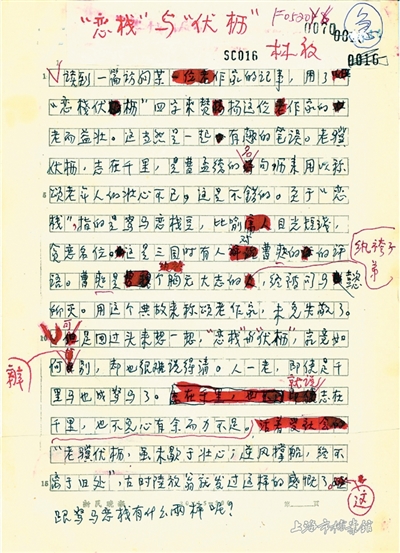 “恋栈”与“伏枥”
急
0070
SC016 林放
0016
读到一篇访问某一位老作家的记事，用了
“恋栈伏枥”四字来赞扬这位老作家的
老而益壮。这当然是一起有趣的笔误。老骥
伏枥，志在千里，是曹孟德的名句，历来用以称
颂老年人的壮心不已，这是不错的。至于“恋
栈”，指的是驽马恋栈豆，比喻人目光短浅，
贪恋名位。这是三国时有人对曹爽的的评
语。曹爽是个胸无大志的人，给训司马懿
纨袴子弟
聊天。用这个典故来称颂老作家，未免失敬了。
可是回过头来想一想，“恋栈”与“伏枥”，究竟如
何别，却也很难说得清。人一老，即使是千
辨
里马也成驽马了。就说志在
千里，也不免心有余而力不足。
“老骥伏枥，虽未歇于壮心；逆风撑船，终不
离于旧处”，古时陆放翁就发过这样的感慨了。
这
跟驽马恋栈有什么两样呢？
新民晚报
上海市档案馆